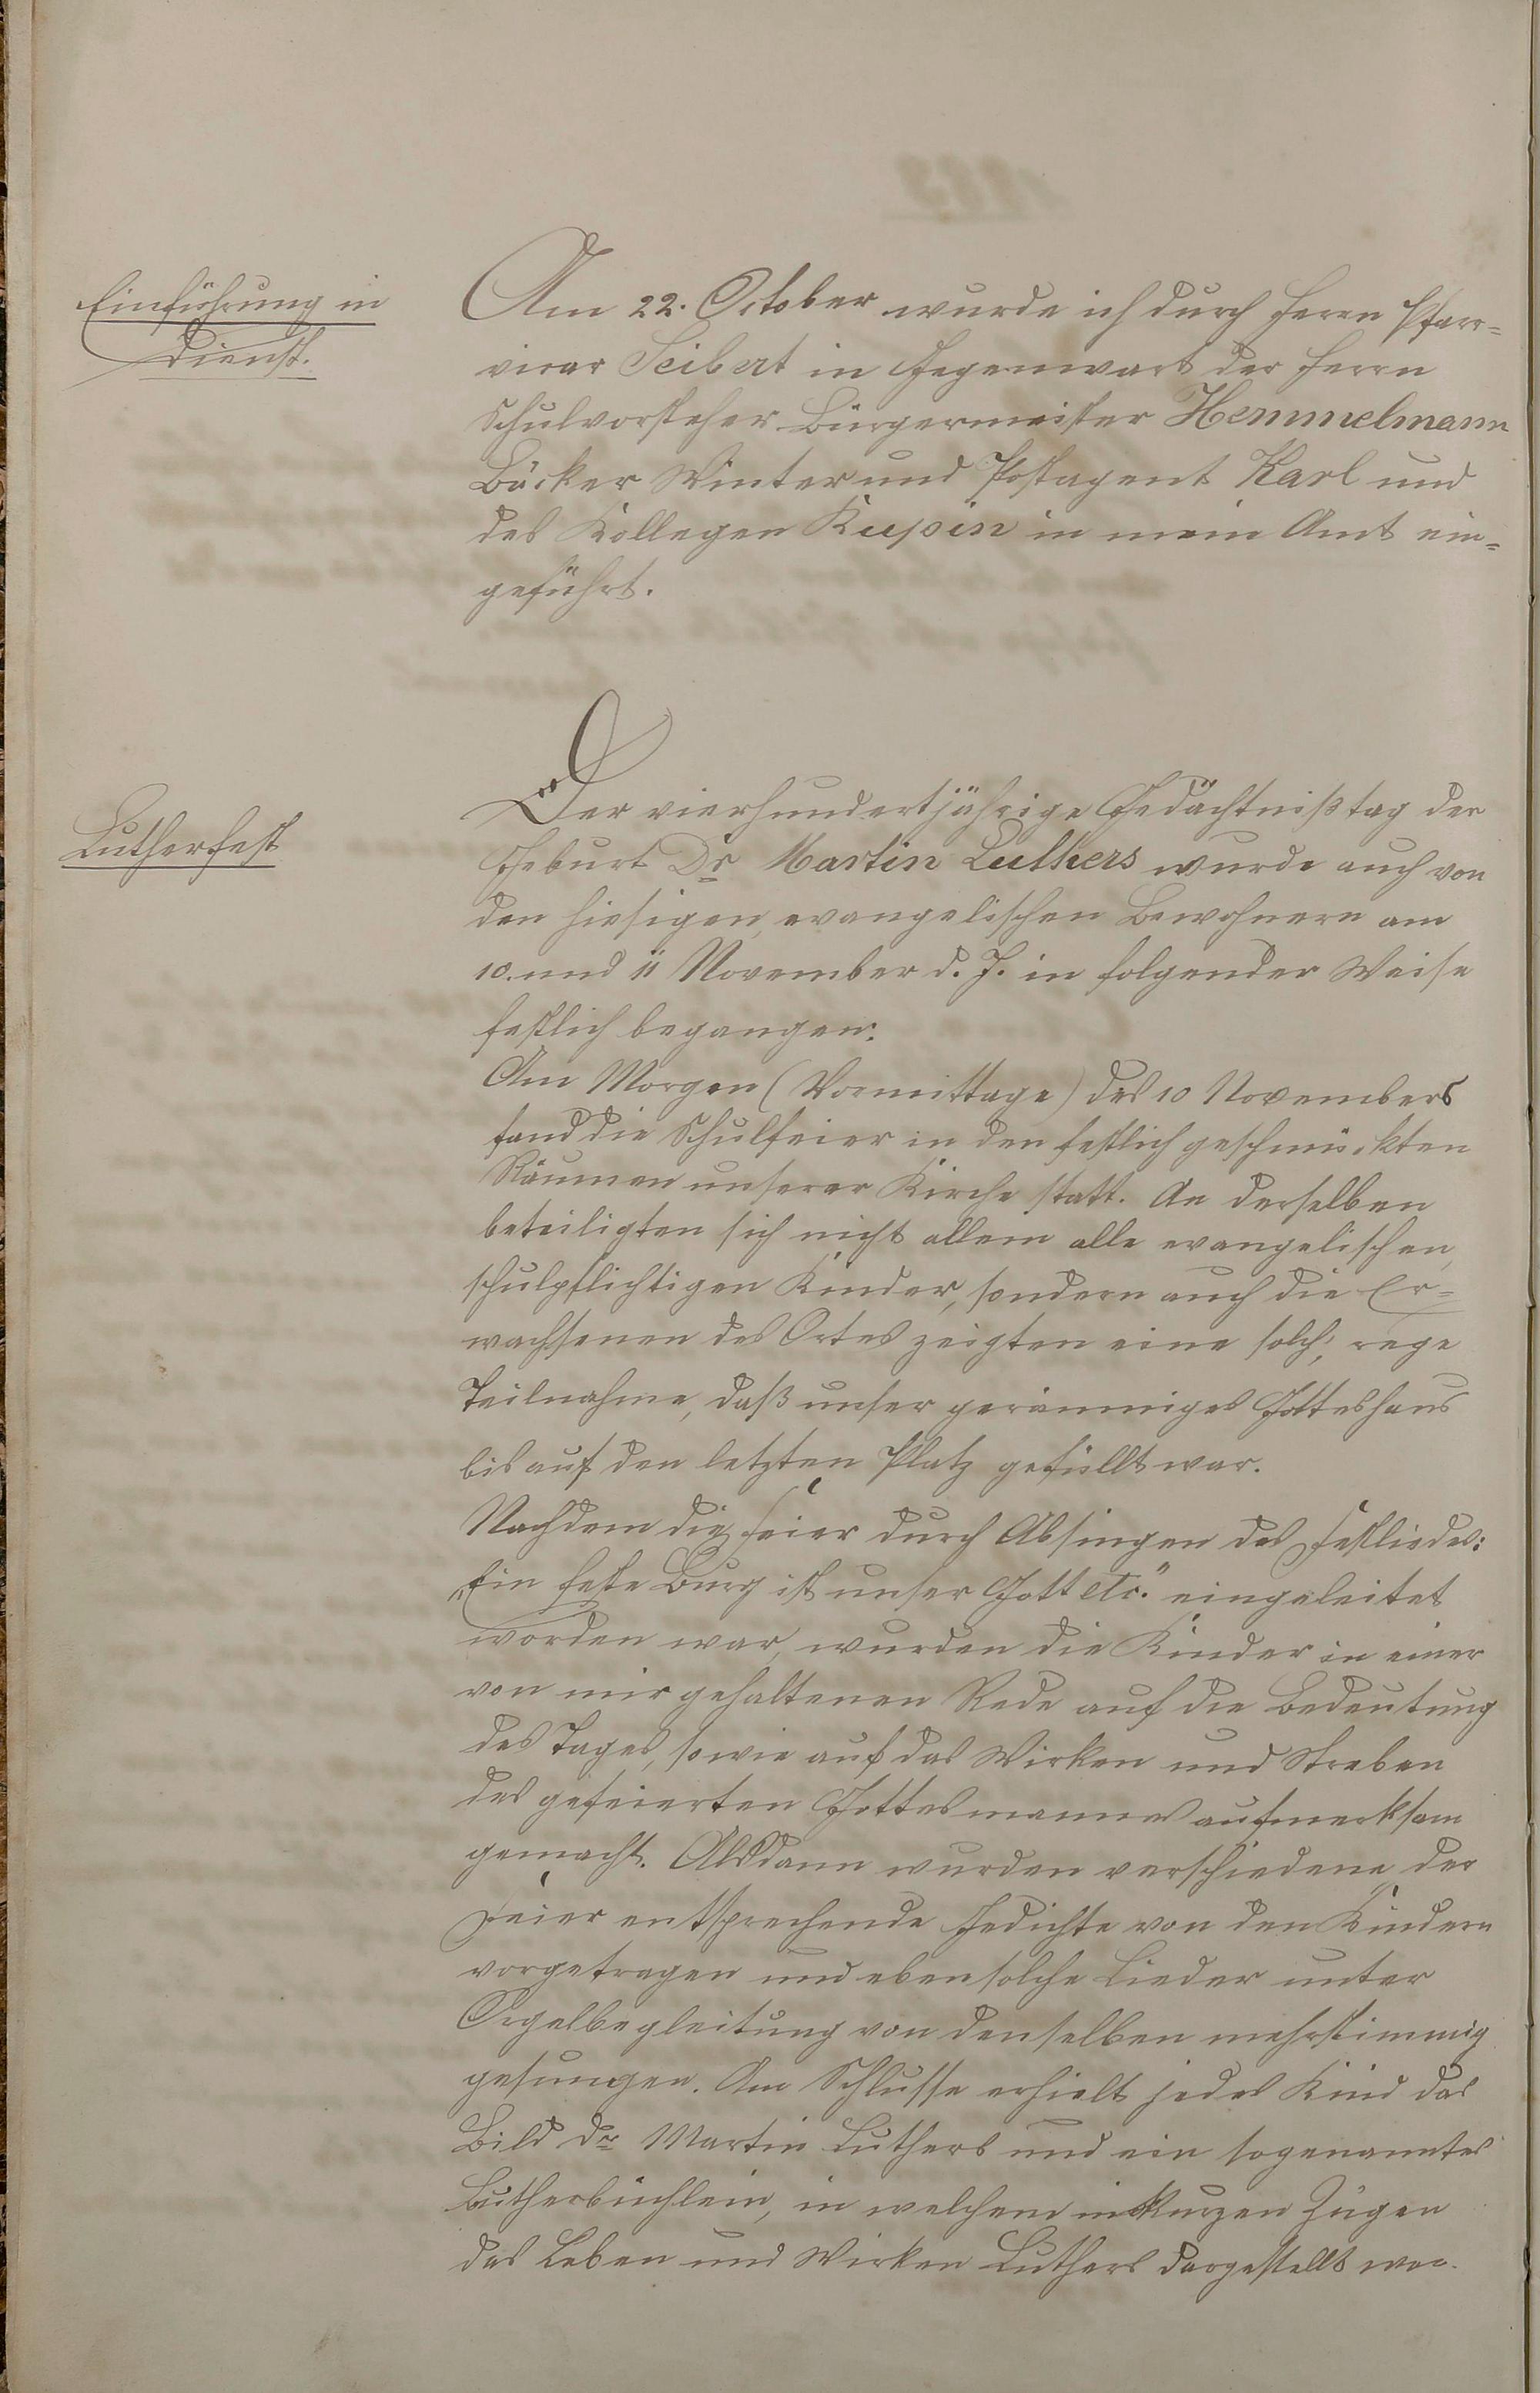 Einführung in
Dienst.
Am 22. October wurde ich durch Herrn Pfarr=
vicar Seibert in Gegenwart der Herrn
Schulvorsteher Bürgermeister Hemmelmann
Bäcker Winter und Postagent Karl und
des Kollegen Kupin in mein Amt ein=
geführt.
Lutherfest
Der vierhundertjährige Gedächtnißtag der
Geburt Dr Martin Luthers wurde auch von
den hiesigen, evangelischen Bewohnern am
10. und 11 November d. J. in folgender Weise
festlich begangen:
Am Morgen (Vormittage) des 10 Novembers
fand die Schulfeier in den festlich geschmückten
Räumen unserer Kirche statt. An derselben
beteiligten sich nicht allein alle evangelischen,
schulpflichtigen Kinder, sondern auch die Er=
wachsenen des Ortes zeigten eine solch', rege
Teilnahme, daß unser geräumiges Gotteshaus
bis auf den letzten Platz gefüllt war.
Nachdem die Feier durch Absingen des Festliedes:
„Ein feste Burg ist unser Gott etc." eingeleitet
worden war, wurden die Kinder in einer
von mir gehaltenen Rede auf die Bedeutung
des Tages, sowie auf das Wirken und Streben
des gefeierten Gottesmannes aufmerksam
gemacht. Alsdann wurden verschiedene, der
Feier entsprechende Gedichte von den Kindern
vorgetragen und ebensolche Lieder unter
Orgelbegleitung von denselben mehrstimmig
gesungen. Am Schlusse erhielt jedes Kind das
Bild Dr Martin Luthers und ein sogenanntes
Lutherbüchlein, in welchem in kurzen Zügen
das Leben und Wirken Luthers dargestellt war.